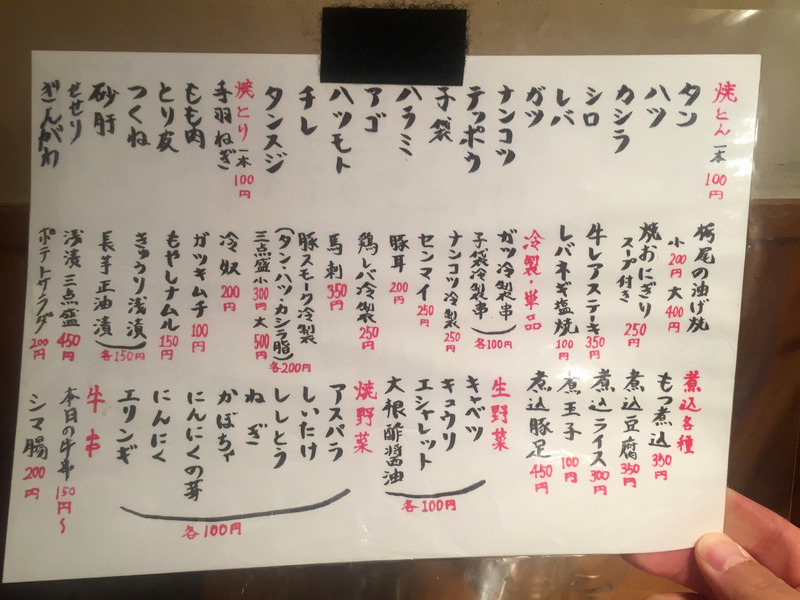 焼とん 一本 100円
タン
ハツ
カシラ
シロ
レバ
ガツ
ナンコツ
テッポウ
子袋
ハラミ
アゴ
ハツモト
チレ
タンスジ
焼とり 一本 100円
手羽ねぎ
もも肉
とり皮
つくね
砂肝
せせり
ぎんがわ
栃尾の油げ焼
小200円 大400円
焼おにぎり
スープ付き 250円
牛レアステーキ 350円
レバネギ塩焼 100円
冷製・単品
ガツ冷製串
子袋冷製串
各100円
ナンコツ冷製 250円
センマイ 250円
豚耳 200円
鶏レバ冷製 250円
馬刺 350円
豚スモーク冷製
(タン・ハツ・カシラ脂) 各200円
三点盛 小300円 大500円
冷奴 200円
ガツキムチ 100円
もやしナムル 150円
きゅうり浅漬
長芋正油漬
各150円
浅漬三点盛 450円
ポテトサラダ 200円
煮込各種
もつ煮込 350円
煮込豆腐 350円
煮込ライス 300円
煮玉子 100円
煮込豚足 450円
生野菜
キャベツ
キュウリ
エシャレット
大根酢醤油
各100円
焼野菜
アスパラ
しいたけ
ししとう
ねぎ
かぼちゃ
にんにくの芽
にんにく
エリンギ
各100円
牛串
本日の牛串 150円〜
シマ腸 200円